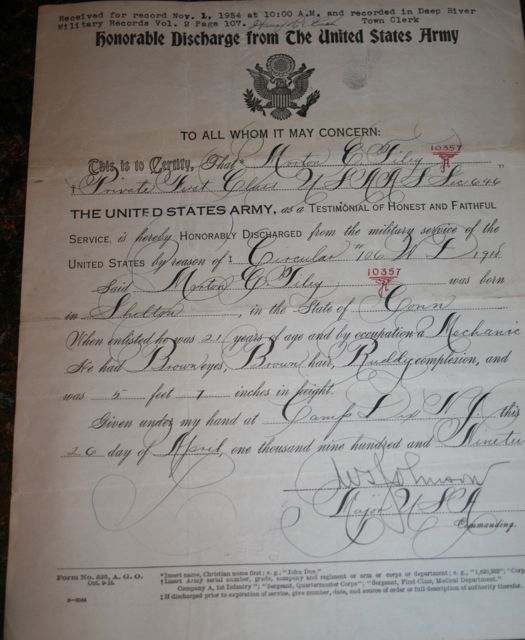 Received for record Nov. 1, 1954 at 10:00 A.M. and recorded in Deep River
Military Records Vol. 2 Page 107. Town Clerk
Honorable Discharge from The United States Army
TO ALL WHOM IT MAY CONCERN:
10357
This is to Certify, That* Morton C.
† Private First Class U S A A S Sec 646
THE UNITED STATES ARMY, as a TESTIMONIAL OF HONEST AND FAITHFUL
SERVICE, is hereby HONORABLY DISCHARGED from the military service of the
UNITED STATES by reason of‡ Circular 106 W D 1918
10357
Said Morton C. was born
in Shelton, in the State of Conn
When enlisted he was 21 years of age and by occupation a Mechanic
He had Brown eyes, Brown hair, Ruddy complexion, and
was 5 feet 7 inches in height.
Given under my hand at Camp Dix N.J. this
26 day of April, one thousand nine hundred and Nineteen
Johnson
Major U S A
Commanding.
Form No. 525, A. G. O.
Oct. 9-18.
*Insert name, Christian name first; e. g., "John Doe."
†Insert Army serial number, grade, company and regiment or arm or corps or department; e. g., "1,620,302"; "Corp
Company A, 1st Infantry"; "Sergeant, Quartermaster Corps"; "Sergeant, First Class, Medical Department."
‡If discharged prior to expiration of service, give number, date, and source of order or full description of authority therefor.